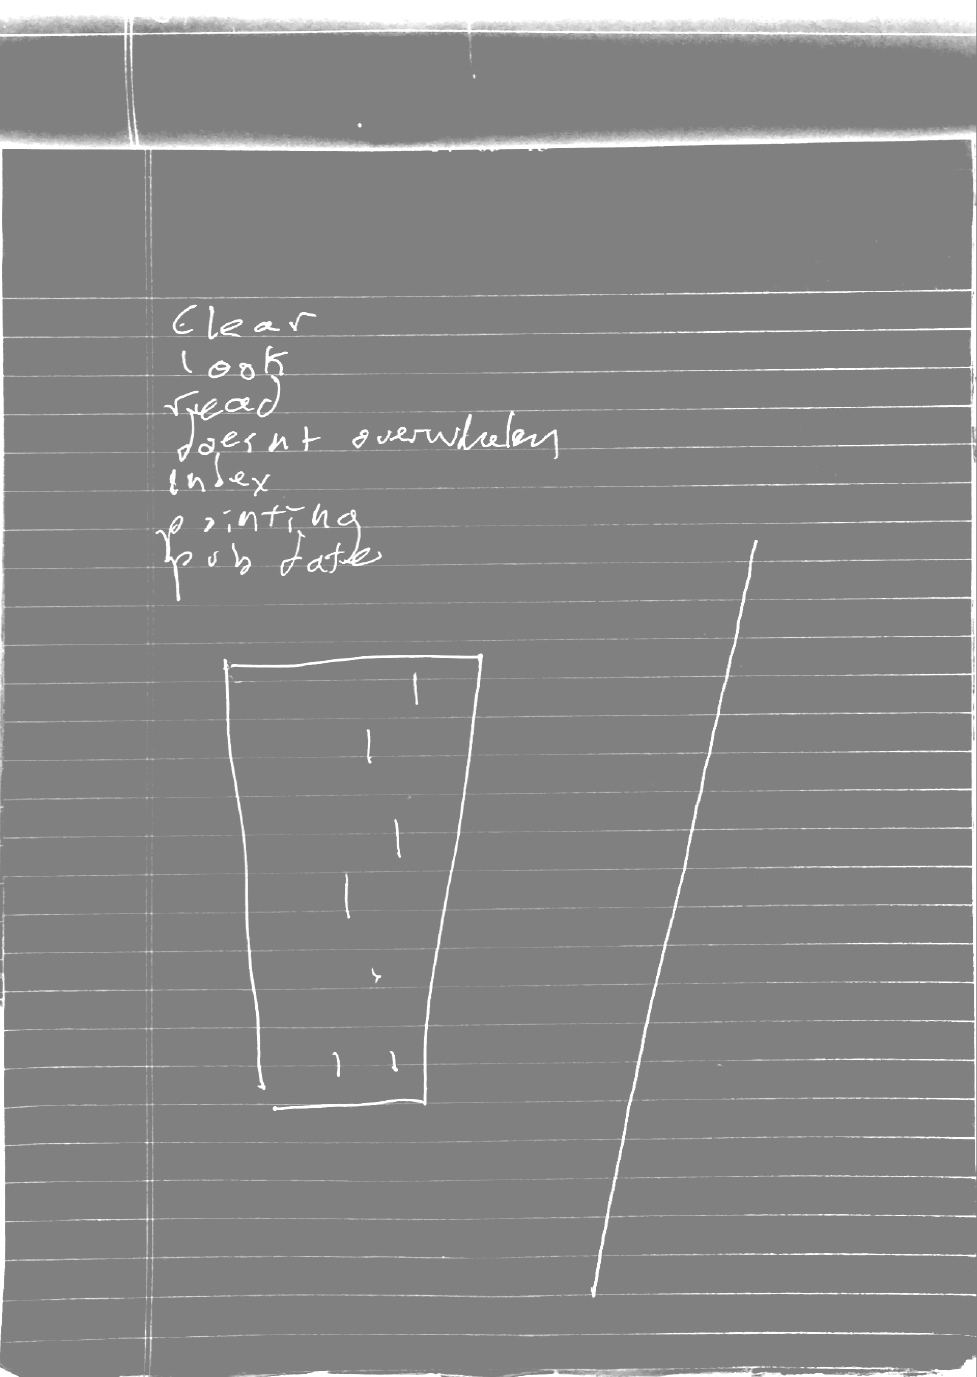 Clear
look
read
doesnt overwhelm
index
printing
pub date